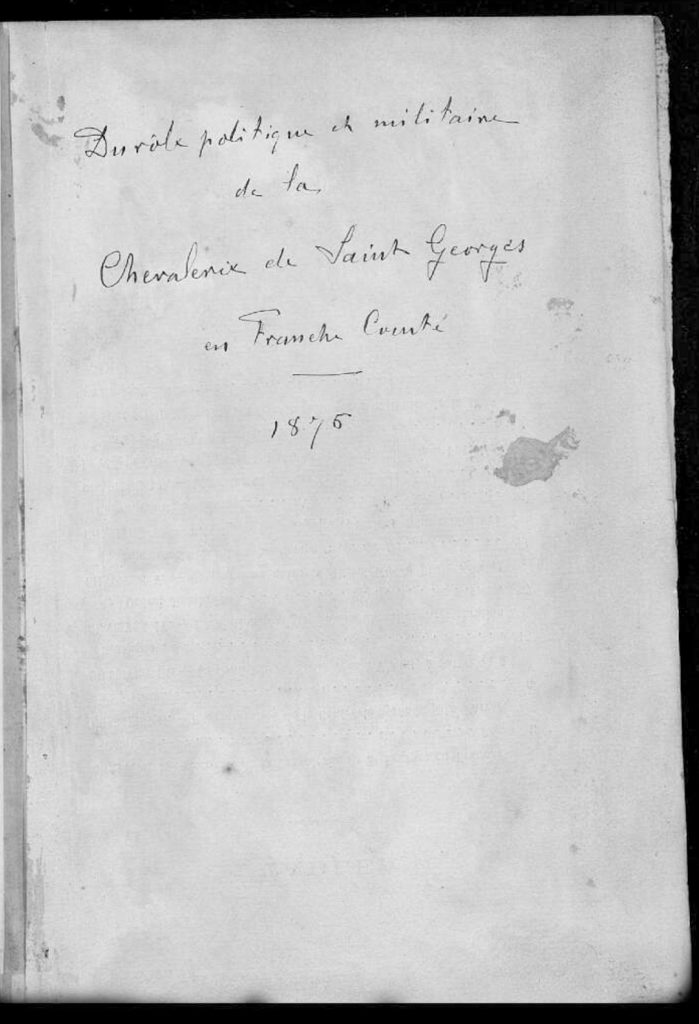 Du rôle politique et militaire
de la
Chevalerie de Saint Georges
en Franche Comté
1875